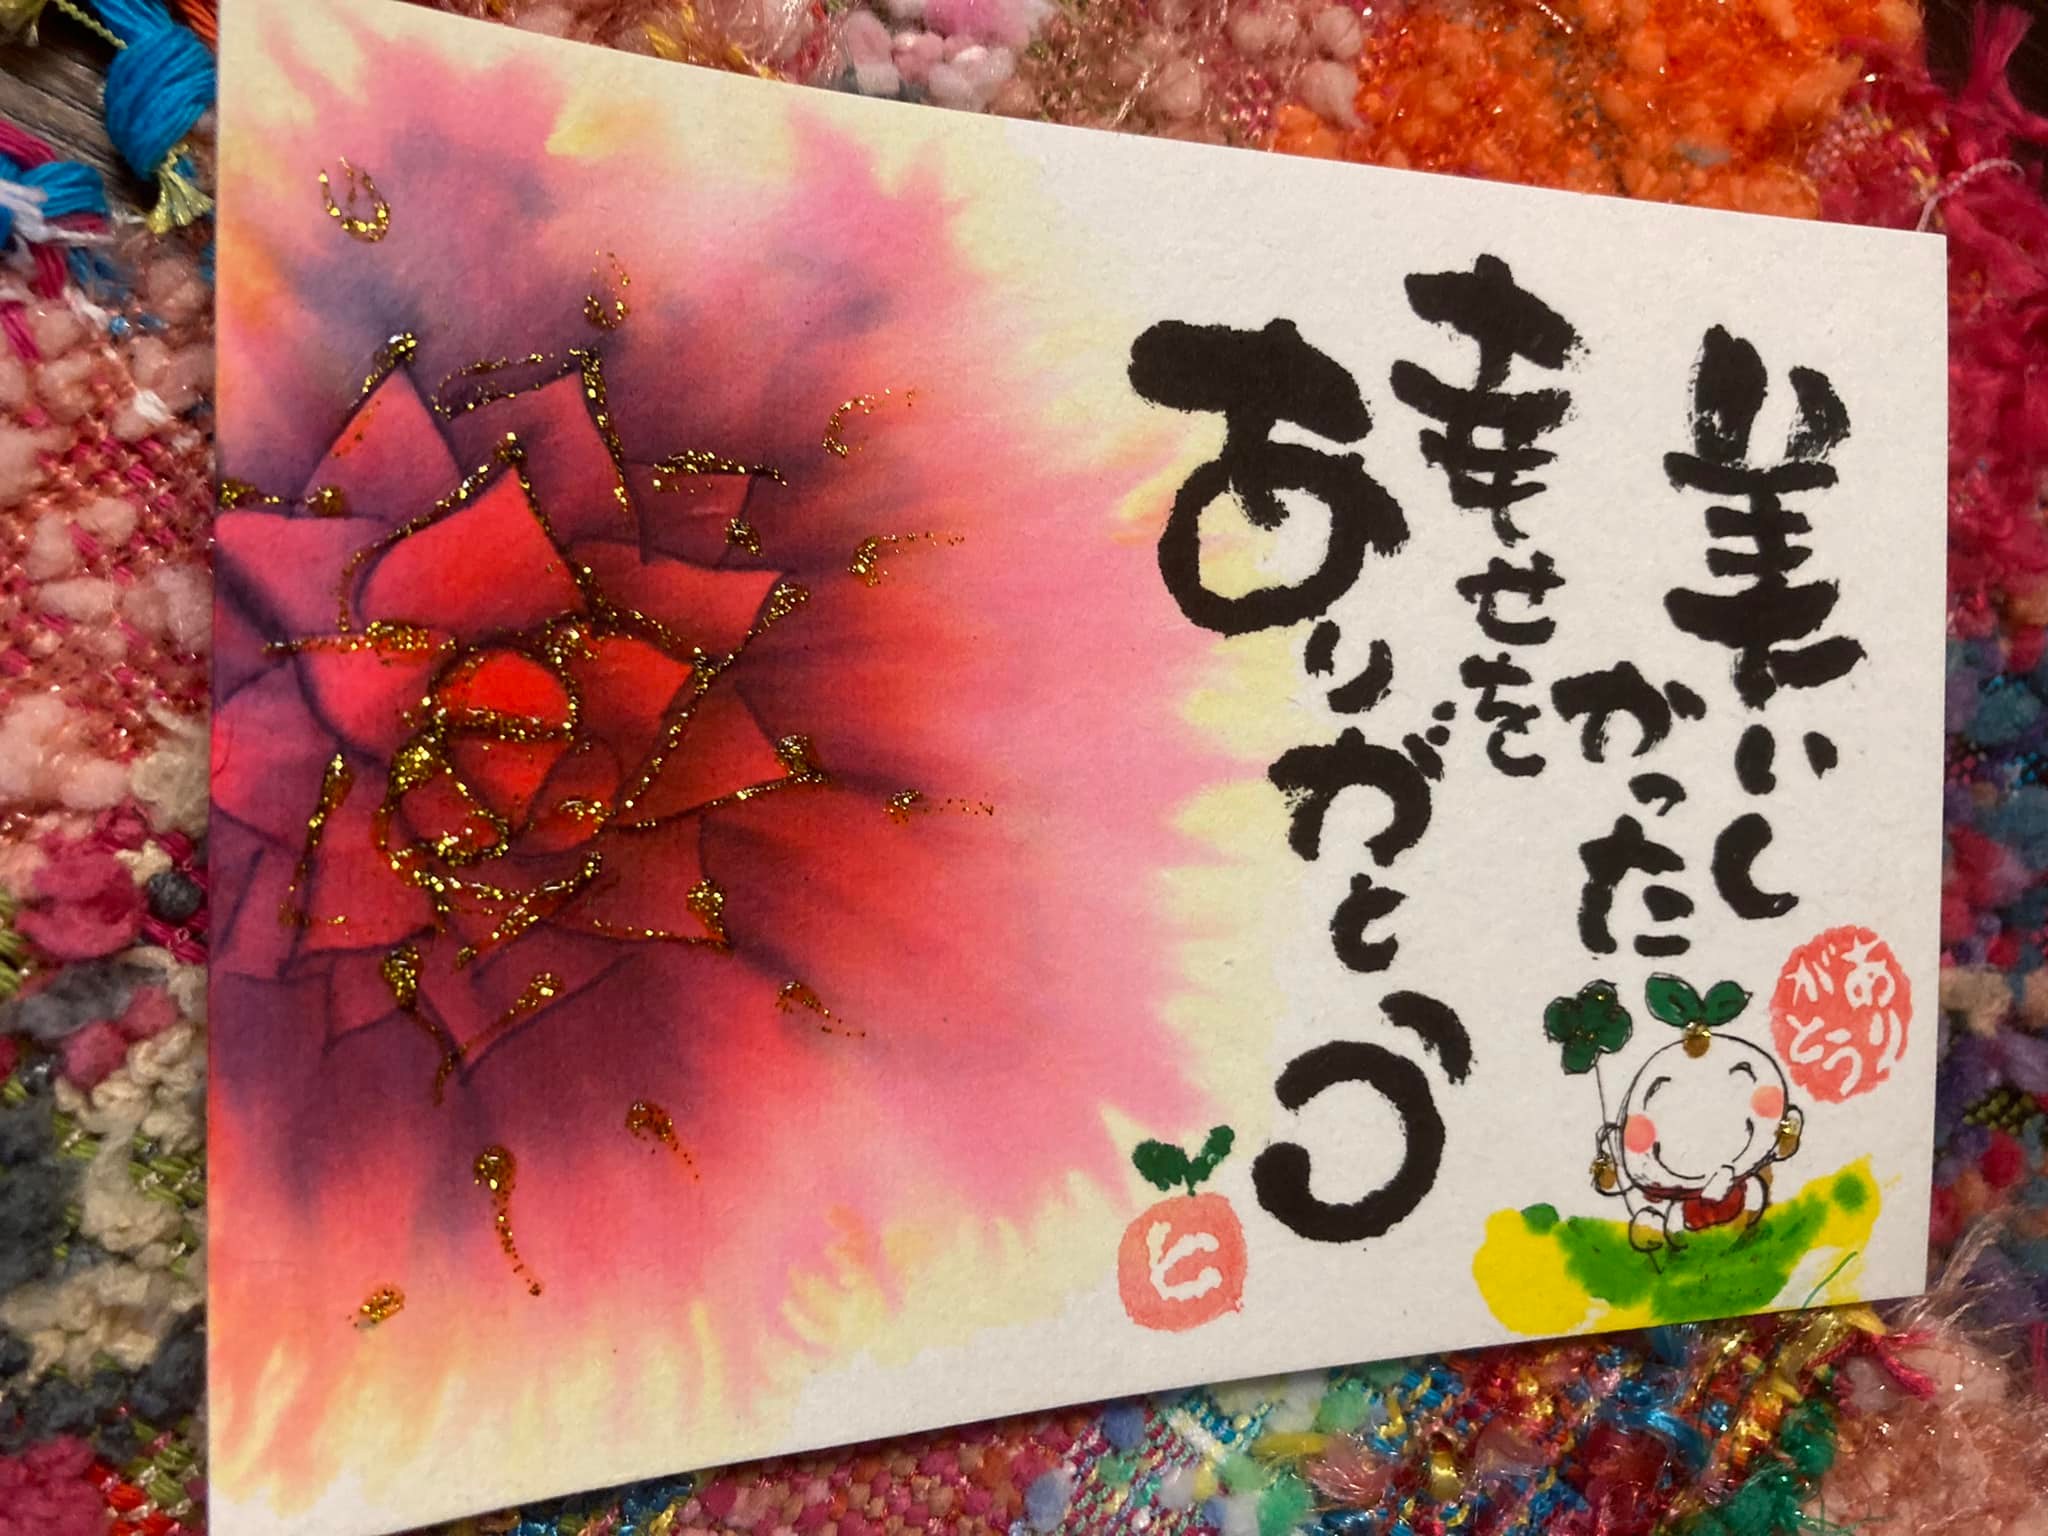 美いし
かった
幸せを
ありがとう
ありがとう
ヒ